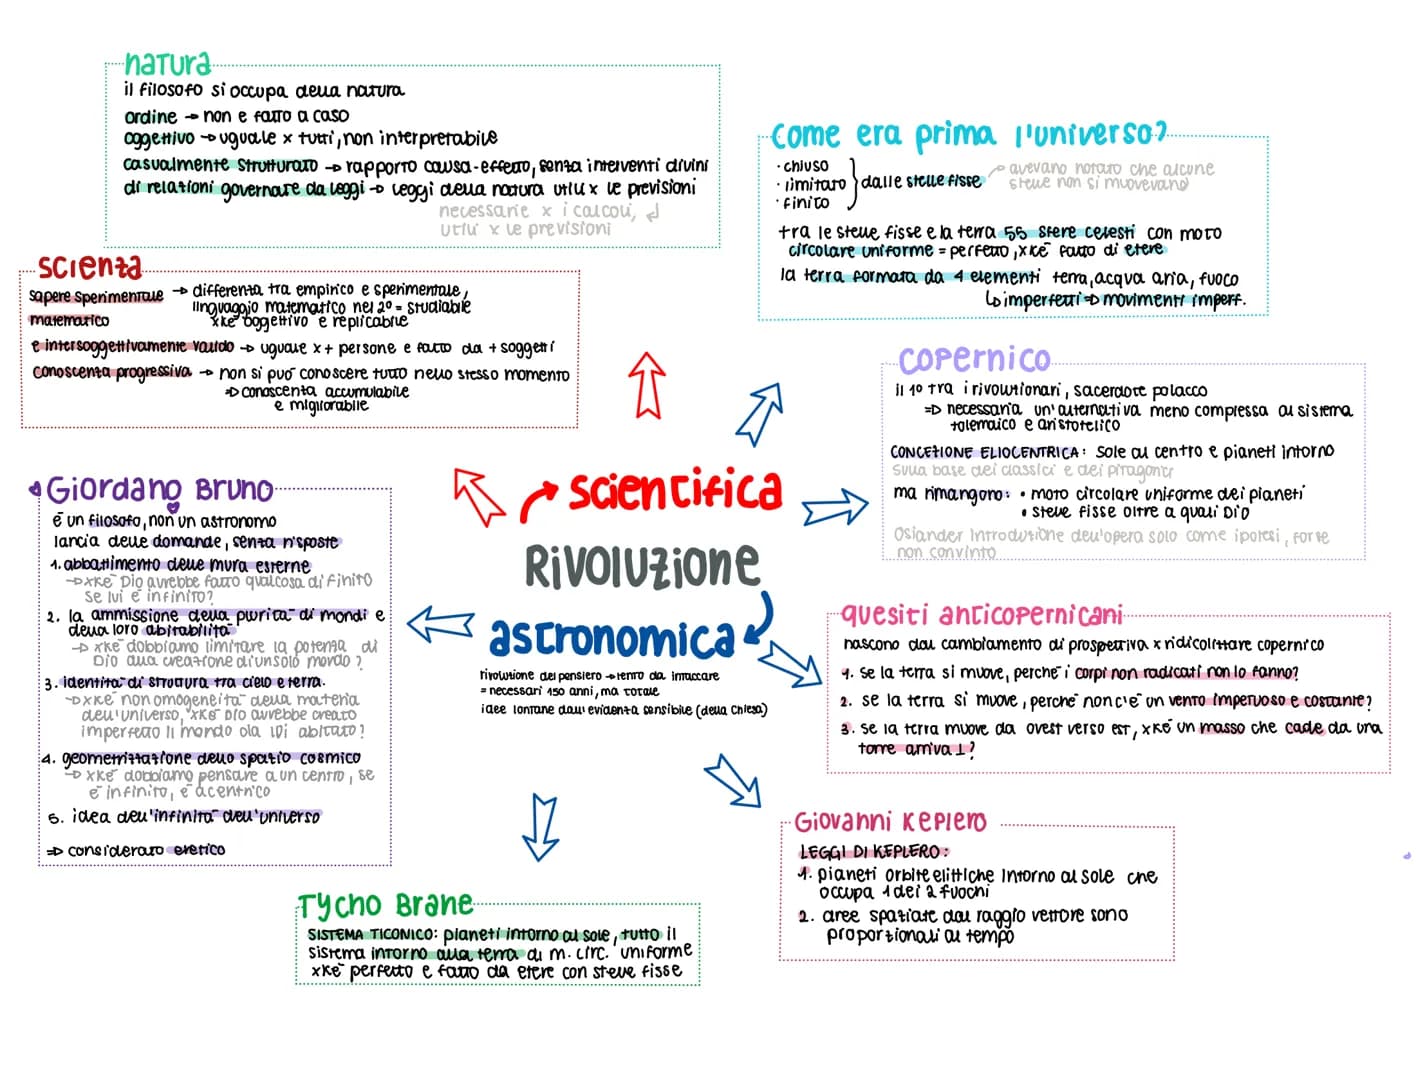 natura
il filosofo si occupa della natura
ordine → non è fatto a caso
oggettivo → uguale x tutti, non interpretabile
casualmente strutturato → rapporto causa-effetto, senza interventi divini
di relazioni governate da leggi → leggi della natura utili x le previsioni
necessarie x i calcoli,
utili x le previsioni
scienza
sapere sperimentale → differenza tra empirico e sperimentale,
linguaggio matematico nel 2° = studiabile
matematico xkè oggettivo e replicabile
e intersoggettivamente valido → uguale x + persone e fatto da + soggetti
conoscenza progressiva → non si può conoscere tutto nello stesso momento
⇒ conoscenza accumulabile
e migliorabile
Come era prima l'universo?
· chiuso
· limitato } dalle stelle fisse
· finito
avevano notato che alcune
stelle non si muovevano
tra le stelle fisse e la terra 55 sfere celesti con moto
circolare uniforme = perfetto, xkè fatto di etere
la terra formata da 4 elementi terra, acqua aria, fuoco
↳ imperfetti ⇒ movimenti imperf.
Copernico
il 1° tra i rivoluzionari, sacerdote polacco
⇒ necessaria un'alternativa meno complessa al sistema
tolemaico e aristotelico
CONCEZIONE ELIOCENTRICA: sole al centro e pianeti intorno
sulla base dei classici e dei pitagorici
ma rimangono: • moto circolare uniforme dei pianeti
• stelle fisse oltre a quali Dio
Osiander introduzione dell'opera solo come ipotesi, forse
non convinto
scientifica
Rivoluzione
astronomica
rivoluzione del pensiero → lento da intaccare
= necessari 150 anni, ma totale
idee lontane dall'evidenza sensibile (della Chiesa)
Giordano Bruno
è un filosofo, non un astronomo
lancia delle domande, senza risposte
1. abbattimento delle mura esterne
→ xkè Dio avrebbe fatto qualcosa di finito
se lui è infinito?
2. la ammissione della plurità di mondi e
della loro abitabilità
→ xkè dobbiamo limitare la potenza di
Dio alla creazione di un solo mondo?
3. identità di struttura tra cielo e terra.
→ xkè non omogeneità della materia
dell'universo, xkè Dio avrebbe creato
imperfetto il mondo ola lDi abitato?
4. geometrizzazione dello spazio cosmico
→ xkè dobbiamo pensare a un centro, se
è infinito, è acentrico
5. idea dell'infinità dell'universo
⇒ considerato eretico
quesiti anticopernicani
nascono dal cambiamento di prospettiva x ridicolizzare copernico
1. se la terra si muove, perchè i corpi non radicati non lo fanno?
2. se la terra si muove, perchè non c'è un vento impetuoso e costante?
3. se la terra muove da ovest verso est, xkè un masso che cade da una
torre arriva ⊥?
Giovanni Keplero
LEGGI DI KEPLERO:
1. pianeti orbite elittiche intorno al sole che
occupa 1 dei 2 fuochi
2. aree spaziate dal raggio vettore sono
proporzionali al tempo
Tycho Brane
SISTEMA TICONICO: pianeti intorno al sole, tutto il
sistema intorno alla terra di m. circ. uniforme
xkè perfetto e fatto da etere con stelle fisse